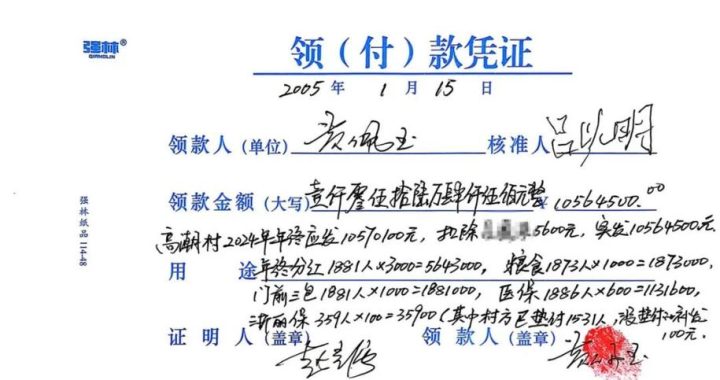 强林®
QIANGLIN
领（付）款凭证
2005年 1月 15日
领款人（单位） 核准人
领款金额（大写）壹仟零伍拾陆万肆仟伍佰元整 ¥10564500.00
高潮村2024年年终应发10570100元，扣除 5600元，实发10564500元。
用途 年终分红1881人×3000=5643000，粮食1873人×1000=1873000，
门前三包1881人×1000=1881000，医保1886人×600=1131600，
浙丽保359人×100=35900（其中村方已垫付1531人，
100元。
证明人（盖章） 领款人（盖章）
强林纸品 114-48